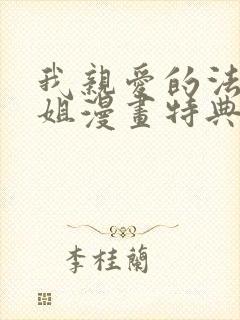 我親愛的法
姐漫畫特典
李桂蘭